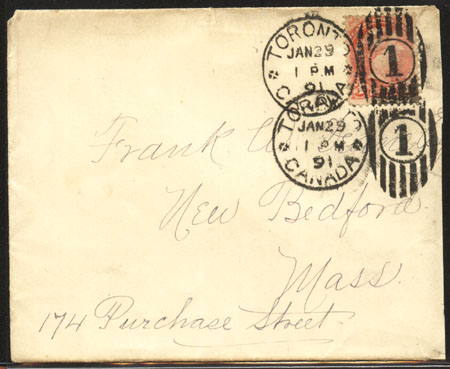 TORONTO
JAN 29
1 PM
91
CANADA
1
TORONTO
JAN 29
1 PM
91
CANADA
1
Frank
New Bedford
Mass.
174 Purchase Street.